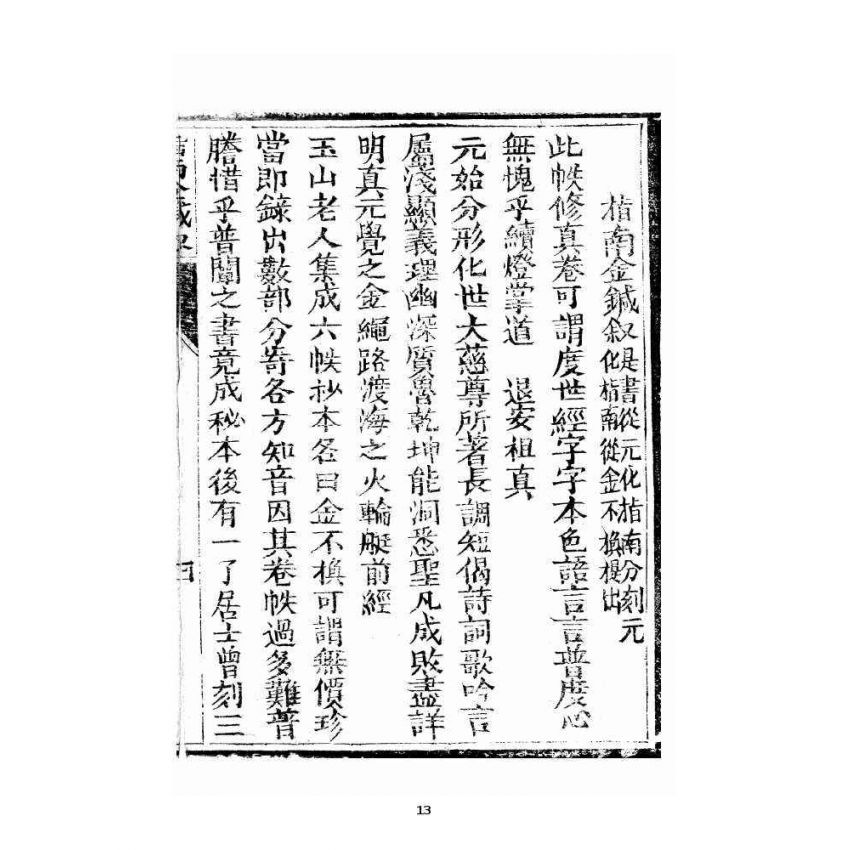 指南金鍼叙是書從元化指南分刻元
化指南從金不換提出
此帙修真卷可謂度世經字字本色語言言普度心
無愧乎續燈掌道　退安祖真
元始分形化世大慈尊所著長調短偈詩詞歌吟言
屬淺顯義理幽深質魯乾坤能洞悉聖凡成敗盡詳
明真元覺之金繩路渡海之火輪艇前經
玉山老人集成六帙抄本名曰金不換可謂無價珍
當即錄出數部分寄各方知音因其卷帙過多難普
謄惜乎普聞之書竟成秘本後有一了居士曾刻三
13